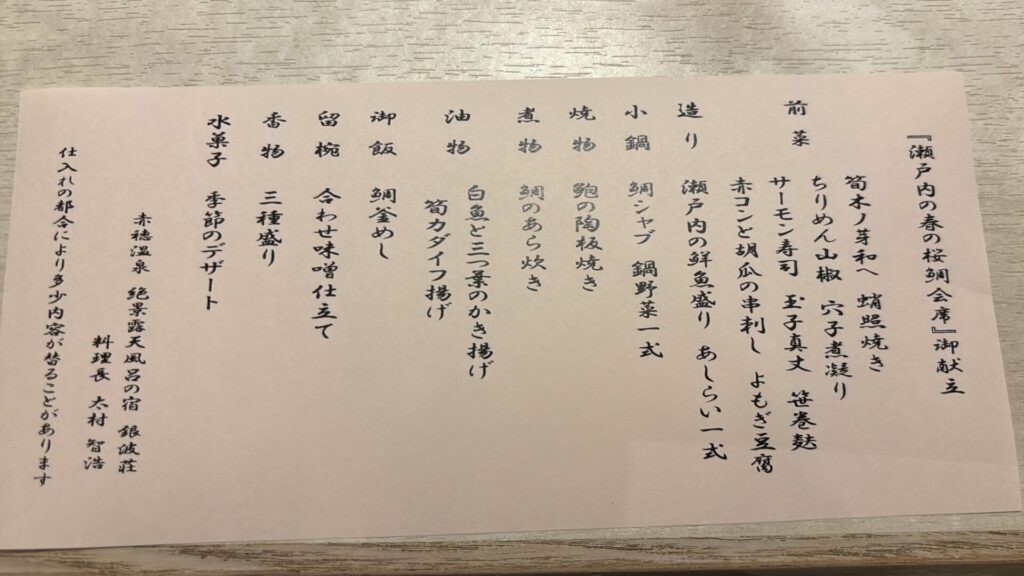 『瀬戸内の春の桜鯛会席』御献立
前菜
筍木ノ芽和へ　蛸照焼き
ちりめん山椒　穴子煮凝り
サーモン寿司　玉子真丈　笹巻麩
赤コンと胡瓜の串刺し　よもぎ豆腐
造り　瀬戸内の鮮魚盛り　あしらい一式
小鍋　鯛シャブ　鍋野菜一式
焼物　鮑の陶板焼き
煮物　鯛のあら炊き
油物　白魚と三つ葉のかき揚げ
筍カダイフ揚げ
御飯　鯛釜めし
留椀　合わせ味噌仕立て
香物　三種盛り
水菓子　季節のデザート
赤穂温泉　絶景露天風呂の宿　銀波荘
料理長　太村　智浩
仕入れの都合により多少内容が替ることがあります